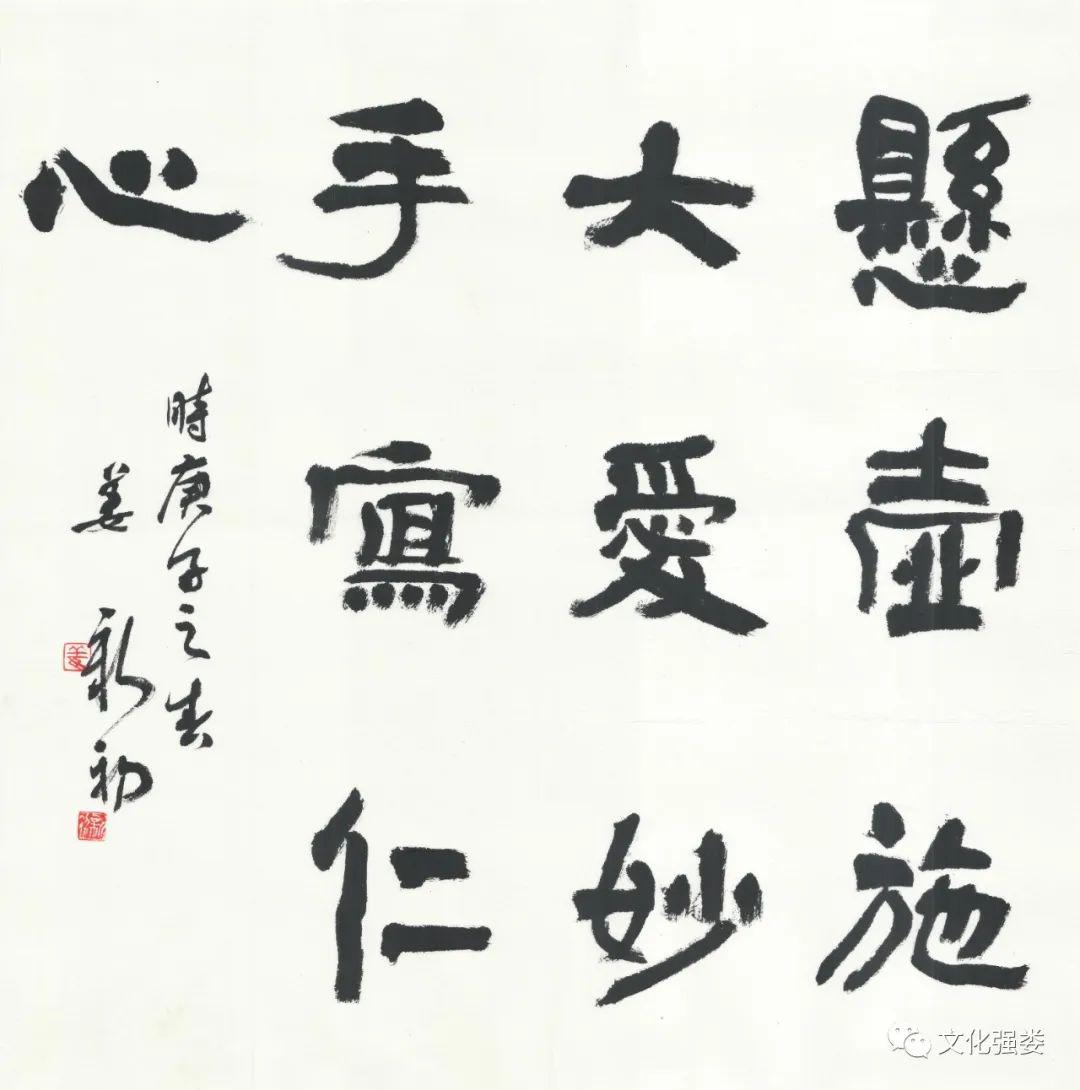 懸壺施
大愛妙
手寫仁
心
時庚子之春
姜新初
姜
文化强娄